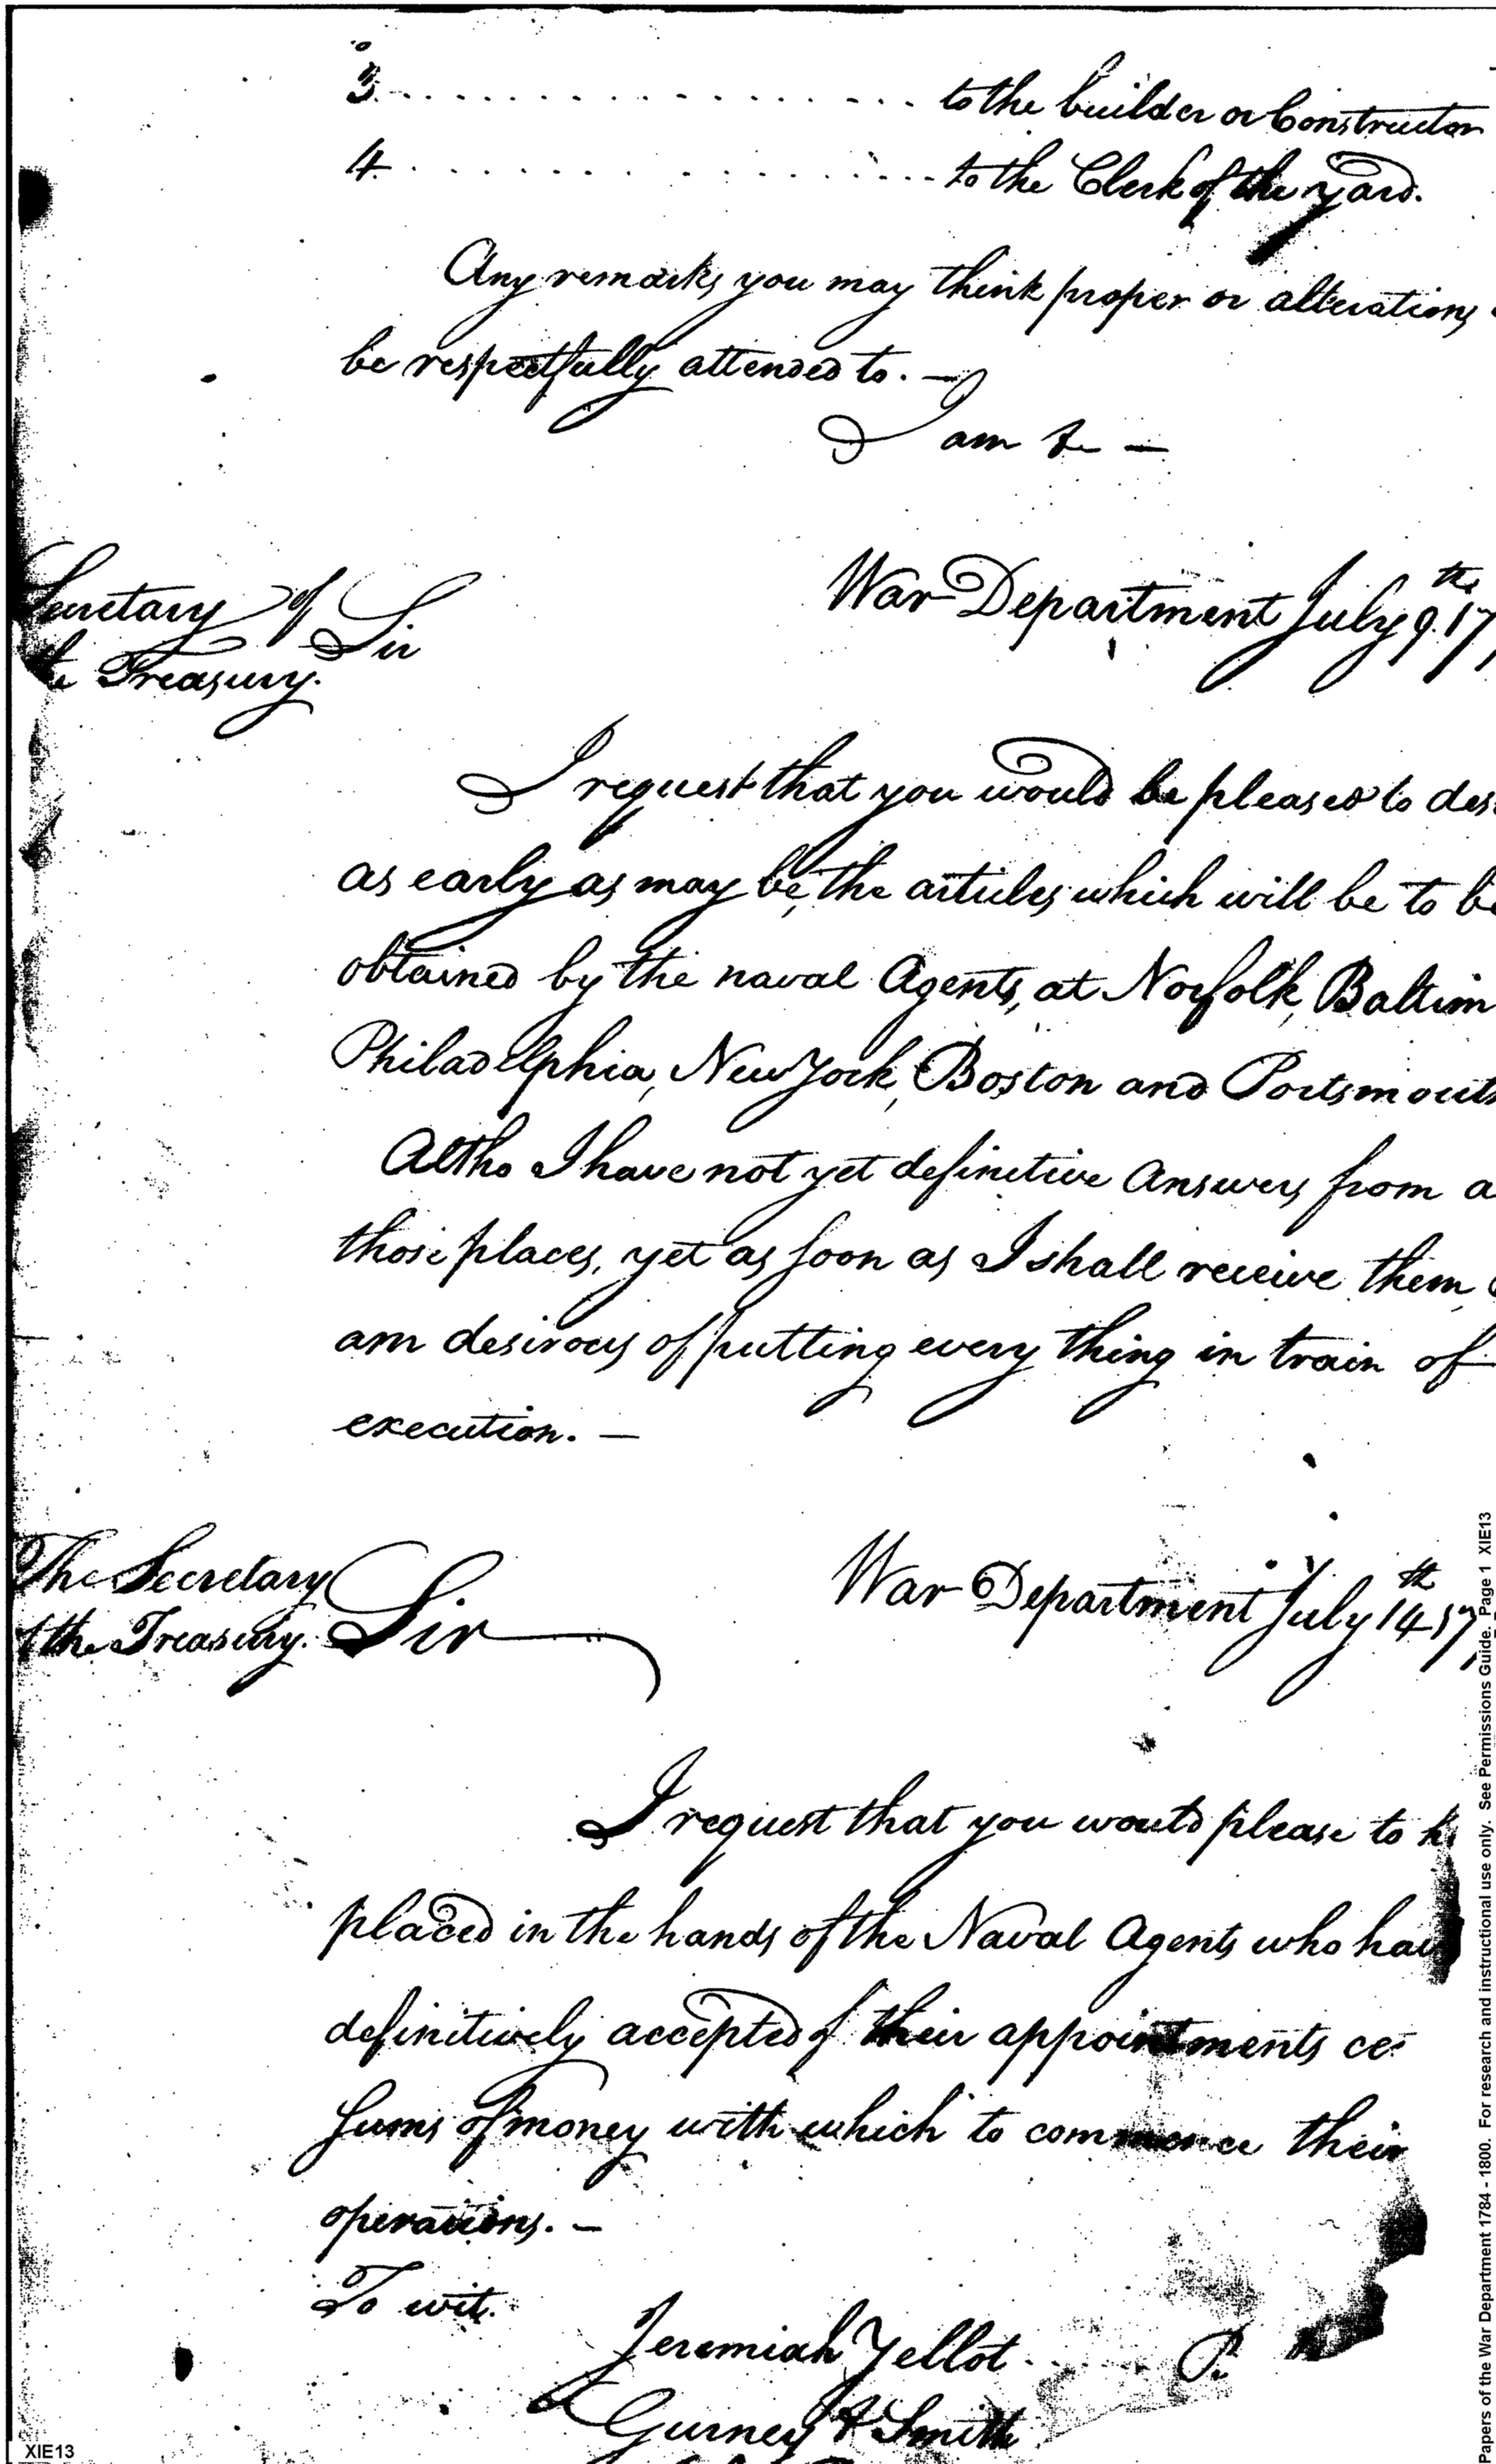 3. . . . . . . . . . . . . . . . . . . to the builder or Constructor
4. . . . . . . . . . . . . . . . . . . to the Clerk of the yard.
Any remarks you may think proper or alterations
be respectfully attended to. —
I am &c —
Secretary of
the Treasury.
Sir
War Department July 9th. 17
I request that you would be pleased to des
as early as may be, the articles which will be to be
obtained by the naval Agents, at Norfolk, Baltim
Philadelphia, New York, Boston and Portsmouth
Altho I have not yet definitive Answers from a
those places, yet as soon as I shall receive them
am desirous of putting every thing in train of
execution. —
The Secretary
of the Treasury.
Sir
War Department July 14th 17
I request that you would please to
placed in the hands of the Naval Agents who have
definitively accepted of their appointments ce
sums of money with which to commence their
operations. —
To wit.
Jeremiah Yellot . . . . .
Gurney & Smith
XIE13
Papers of the War Department 1784 - 1800. For research and instructional use only. See Permissions Guide. Page 1 XIE13